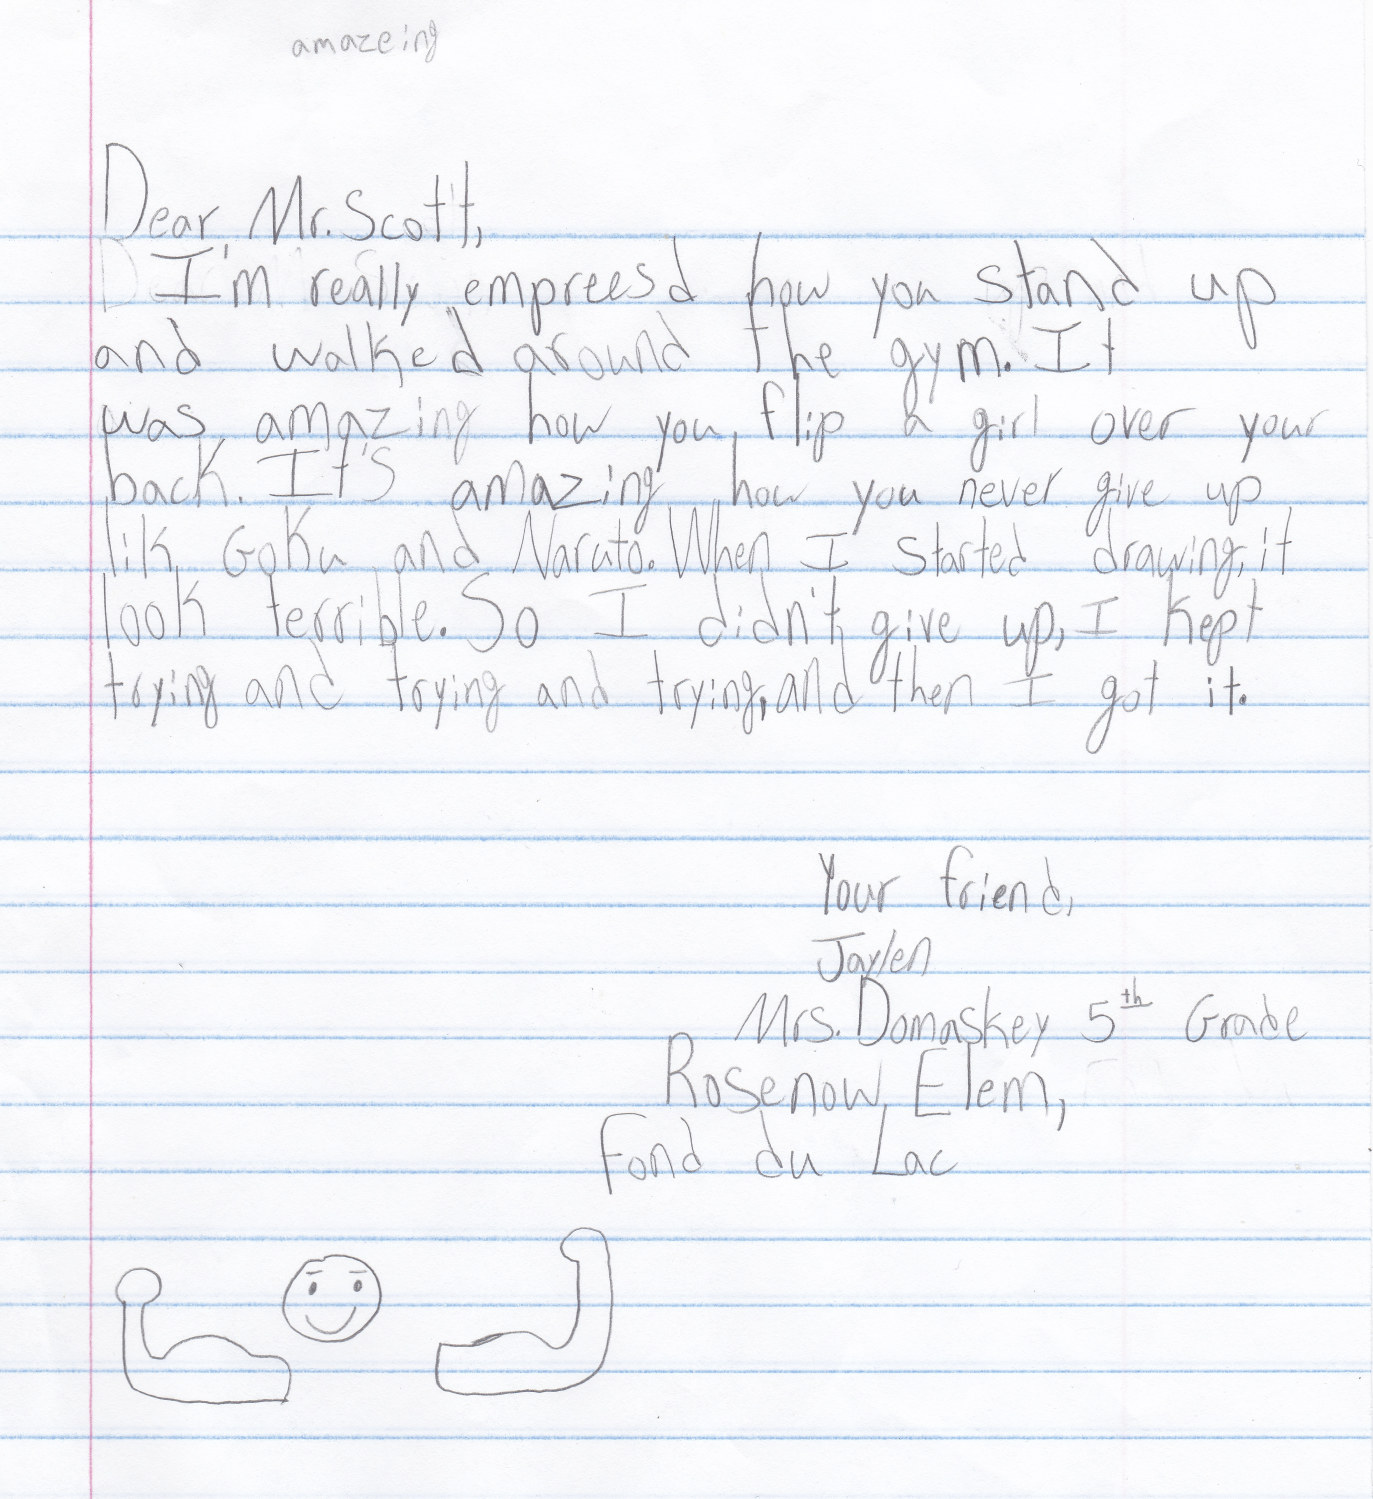 amazeing
Dear, Mr. Scott,
I'm really empreesd how you stand up
and walked around the gym. It
was amazing how you flip a girl over your
back. It's amazing how you never give up
lik GoKu and Naruto. When I started drawing, it
look terrible. So I didn't give up, I kept
trying and trying and trying, and then I got it.
Your friend,
Jaylen
Mrs. Domaskey 5th Grade
Rosenow Elem,
Fond du Lac